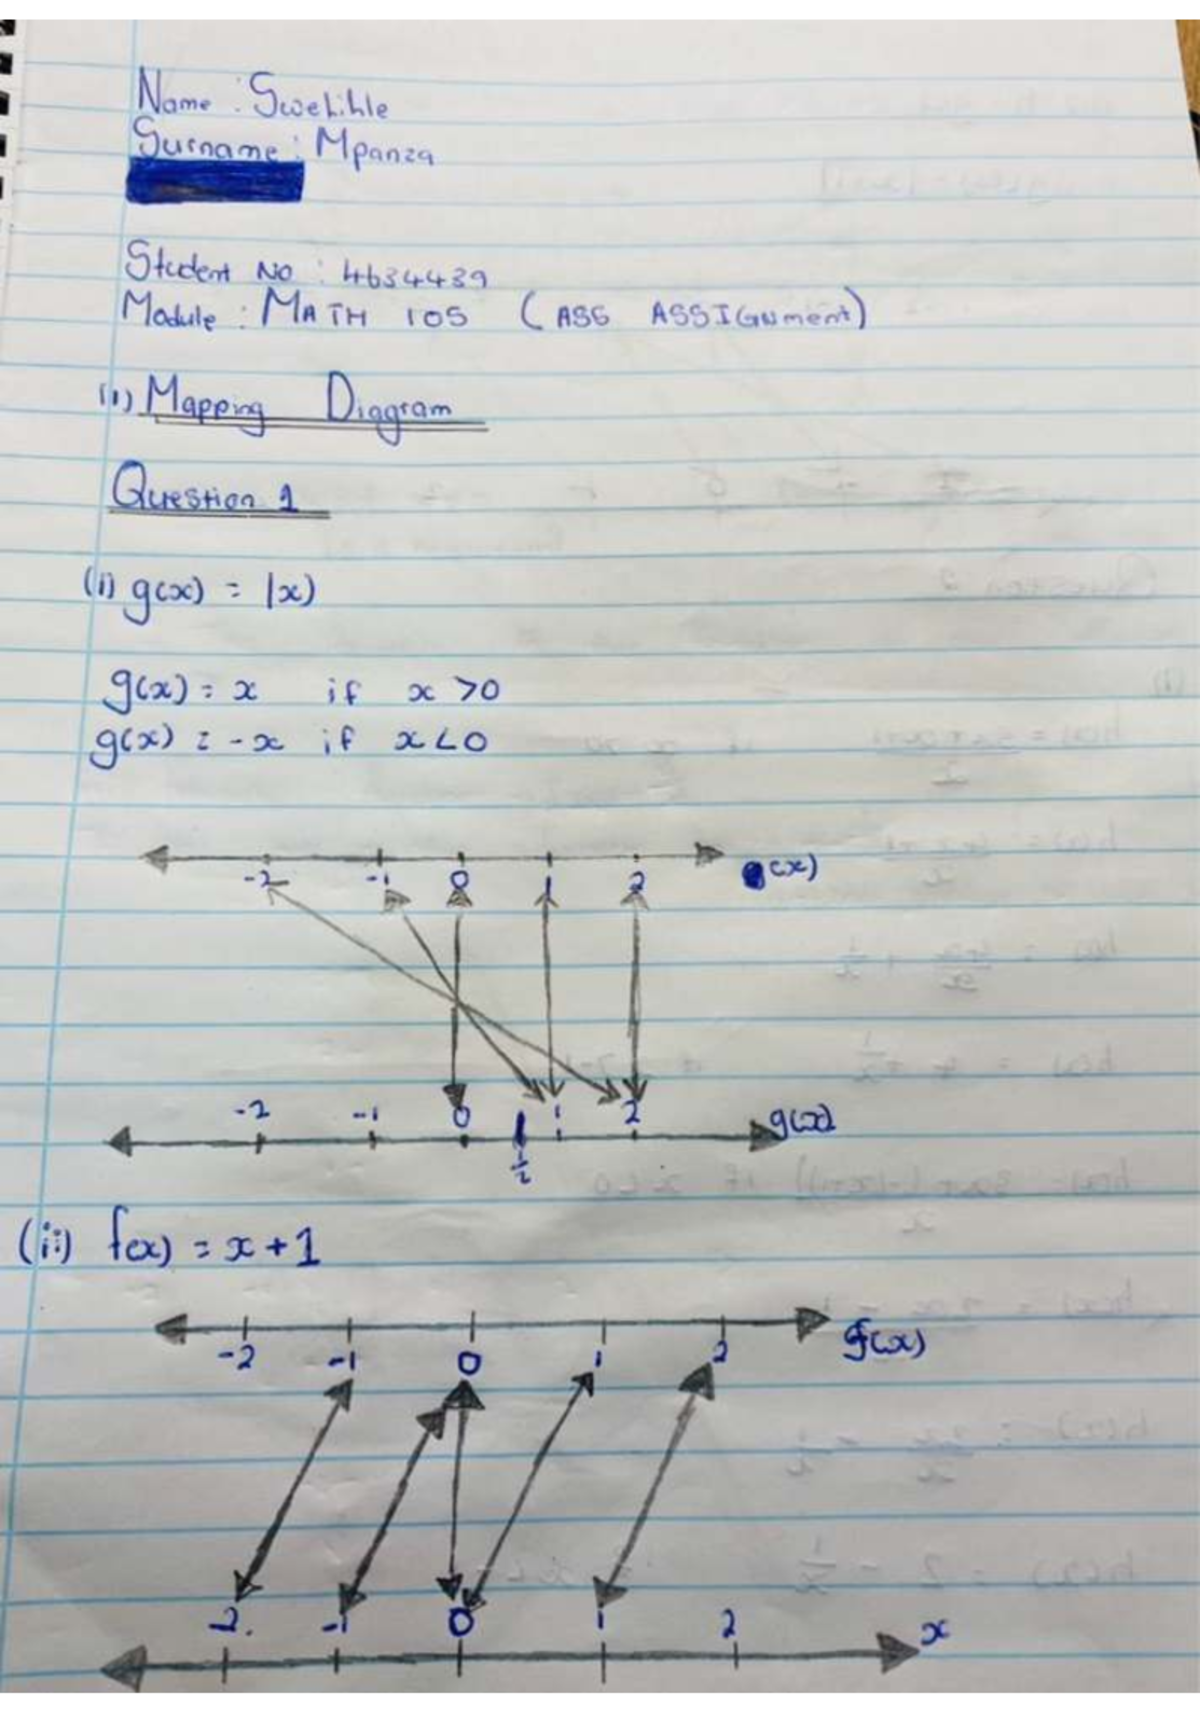 Name : Swelihle
Surname : Mpanza
Student No : 4634439
Module : MATH 105 (ASS ASSIGNment)
(1) Mapping Diagram
Question 1
(i) g(x) = |x)
g(x) = x if x >0
g(x) = -x if x <0
-2 -1 0 1 2 (x)
-2 -1 0 1 2 g(x)
1/2
(ii) f(x) = x + 1
-2 -1 0 1 2 f(x)
-2. -1 0 1 2 x